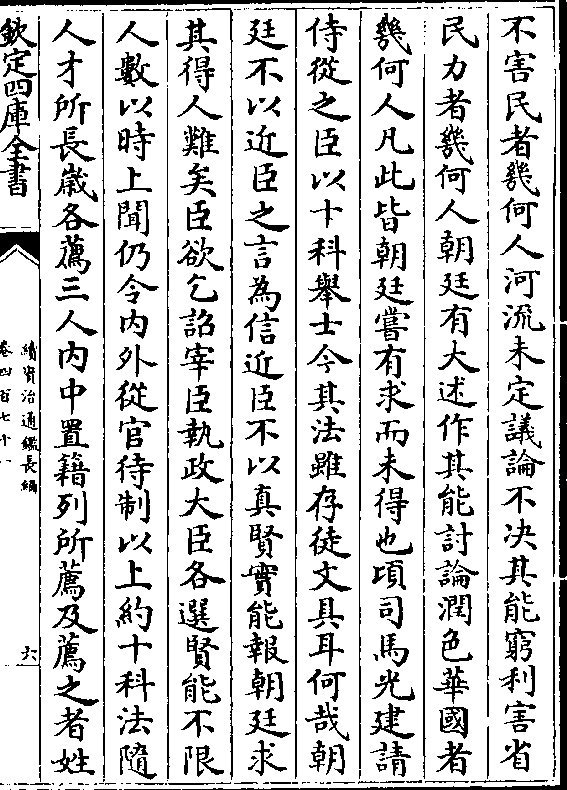 不害民者幾何人河流未定議論不決其能窮利害省
民力者幾何人朝廷有大述作其能討論潤色華國者
幾何人凡此皆朝廷嘗有求而未得也頃司馬光建請
侍從之臣以十科舉士今其法雖存徒文具耳何哉朝
廷不以近臣之言為信近臣不以真賢實能報朝廷求
其得人難矣臣欲乞詔宰臣執政大臣各選賢能不限
人數以時上聞仍令內外從官待制以上約十科法隨
人才所長嵗各薦三人內中置籍列所薦及薦之者姓
欽定四庫全書
續資治通鑑長編
卷四百七十
六